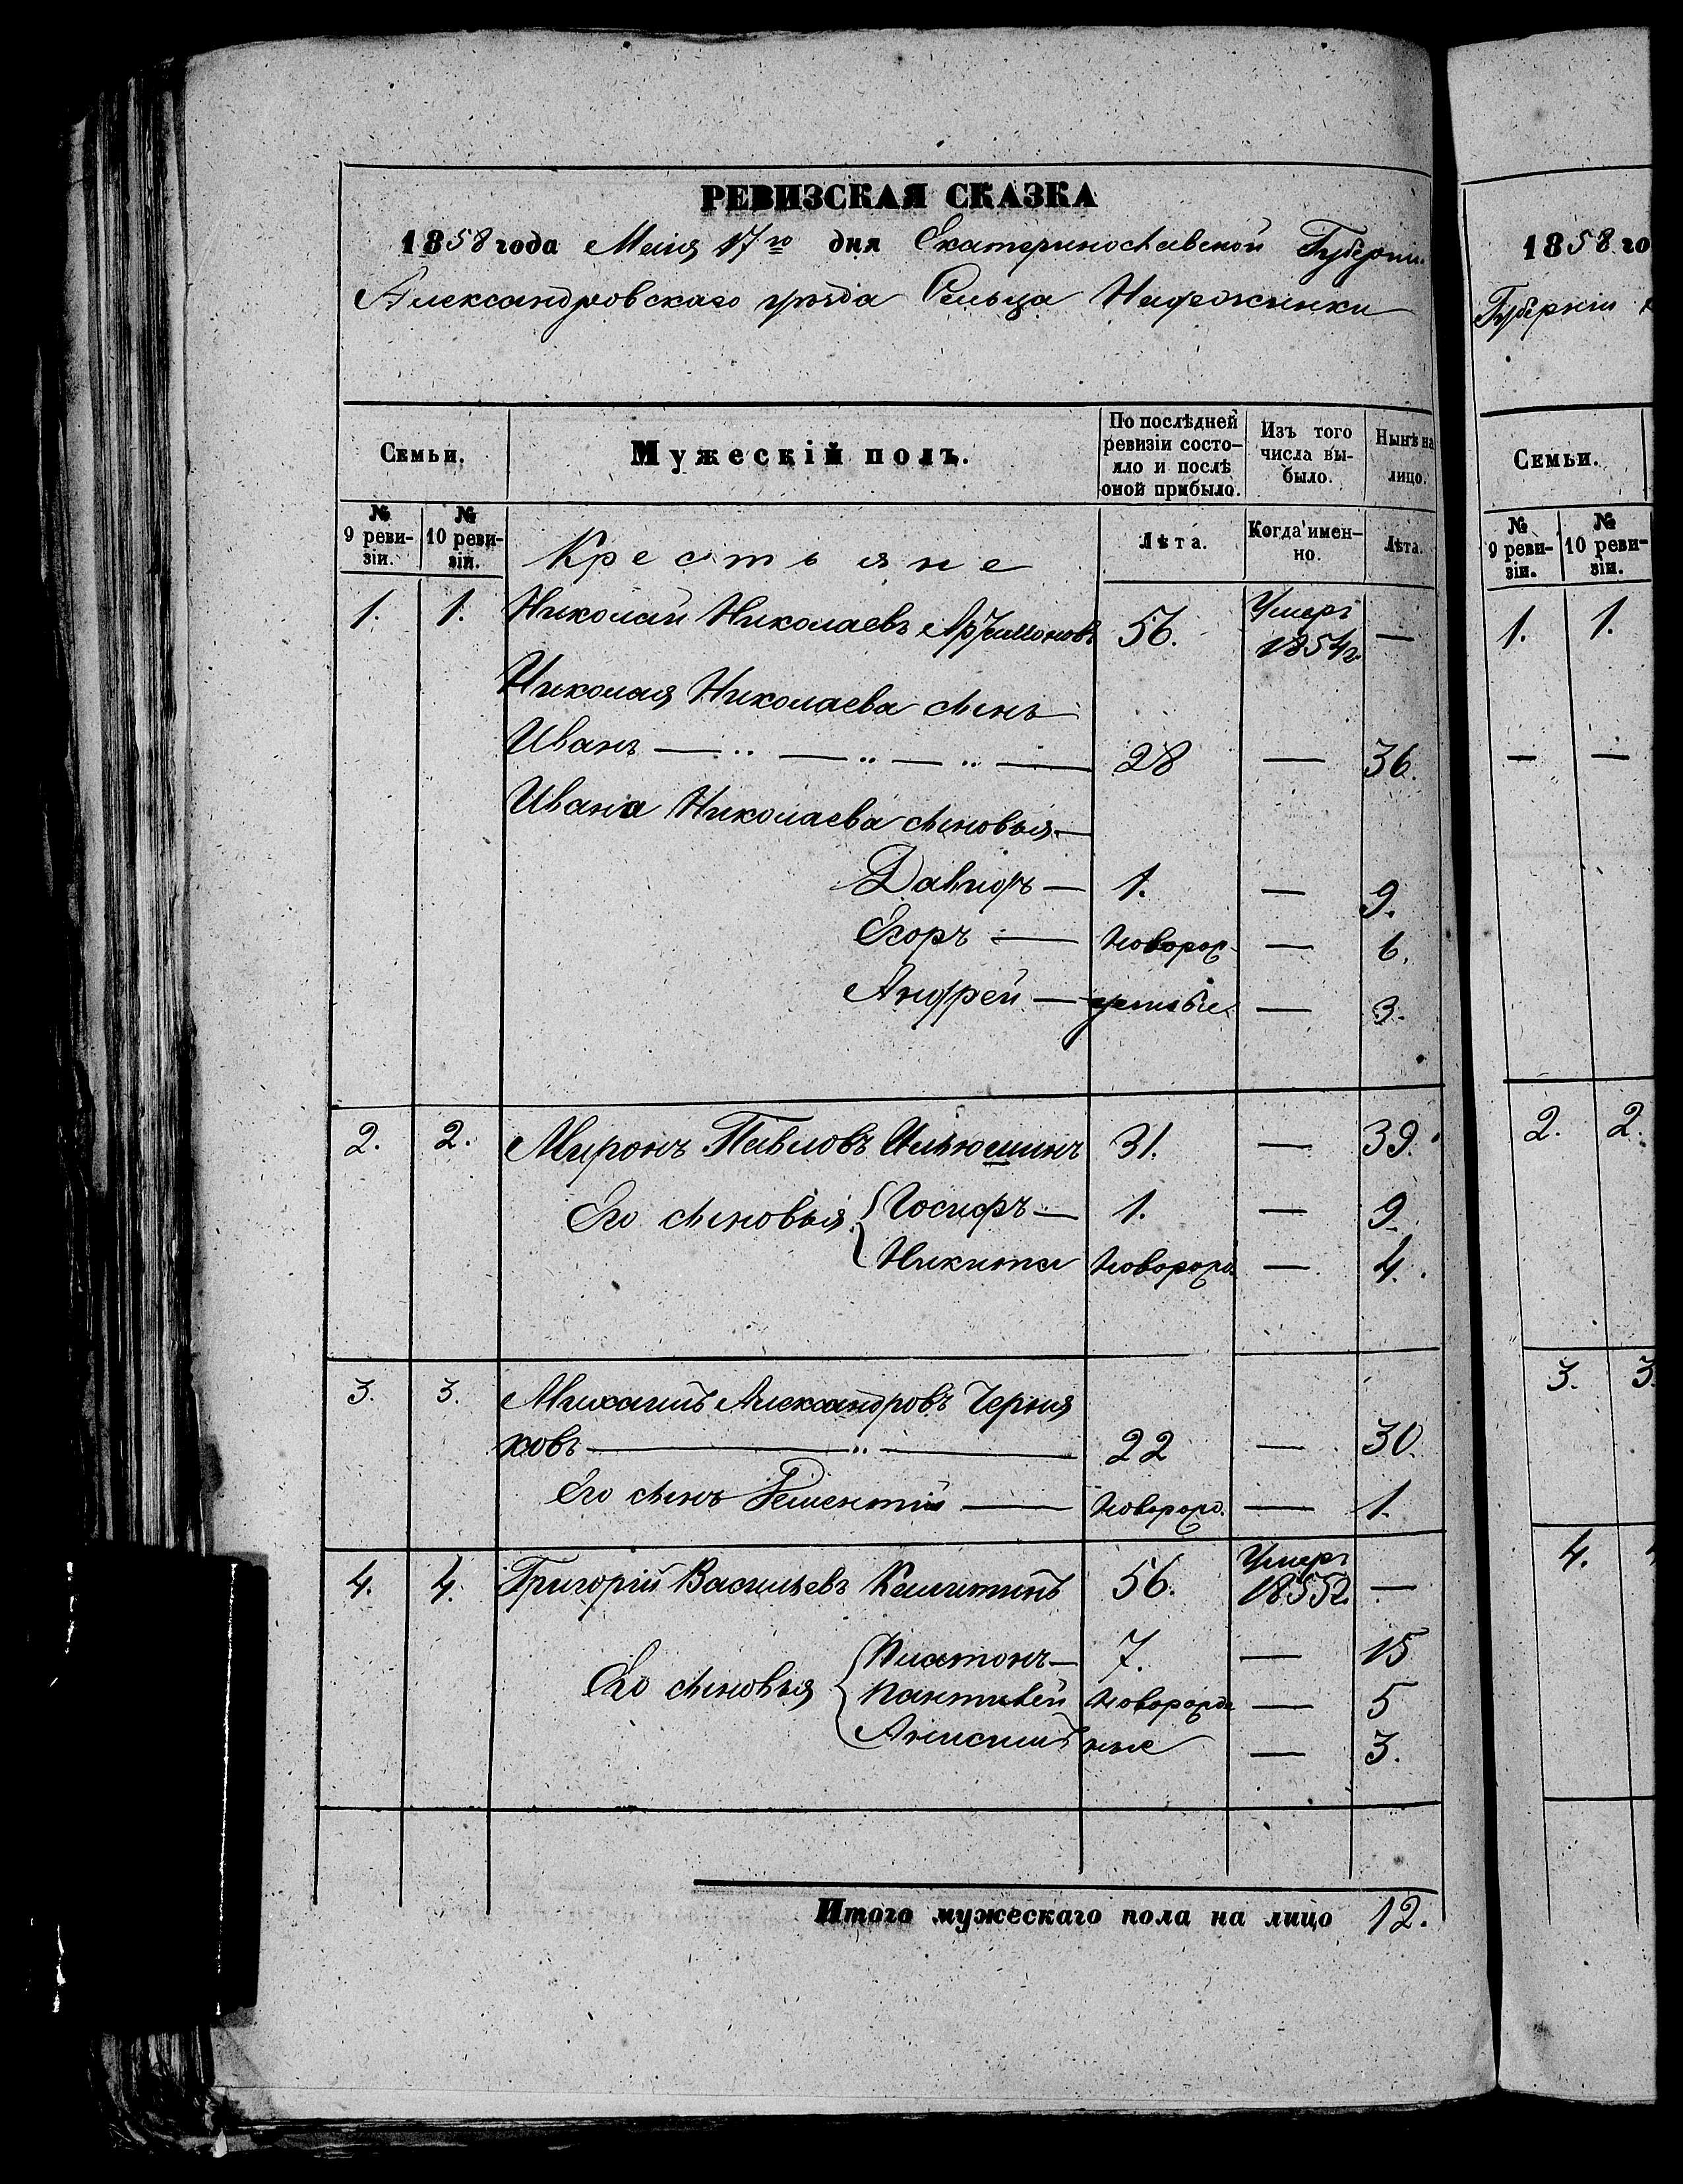 РЕВИЗСКАЯ СКАЗКА
1858 года Маія 17го дня Екатеринославской Губерніи
Александровскаго уѣзда Сельца
Семьи. Мужескій полъ. По послѣдней ревизіи состояло и послѣ оной прибыло. Изъ того числа выбыло. Нынѣ на лицо.
№ 9 ревизіи. № 10 ревизіи. Крестьяне Лѣта. Когда именно. Лѣта.
1. 1. Николай Николаевъ 56. Умеръ 1854г. —
Николая Николаева сынъ
Иванъ — „ — „ — „ — 28 — 36.
Ивана Николаева сыновья —
Давидъ — 1. — 9.
Егоръ — новорож- — 6.
Андрей — — 3.
2. 2. Миронъ Павловъ Ильюшинъ 31. — 39.
Его сыновья { Іосифъ — 1. — 9.
Никита новорожд. — 4.
3. 3. Михаилъ Александровъ Черня
ховъ — „ — 22 — 30.
Его сынъ — новорожд. — 1.
4. 4. Григорій Васильевъ 56. Умеръ 1855г. —
Его сыновья { Платонъ — 7. — 15
новорожден — 5
ные — 3.
Итого мужескаго пола на лицо 12.
1858 го
Губерніи
Семьи.
№ 9 ревизіи. № 10 ревизіи.
1. 1.
— —
2. 2.
3. 3.
4.